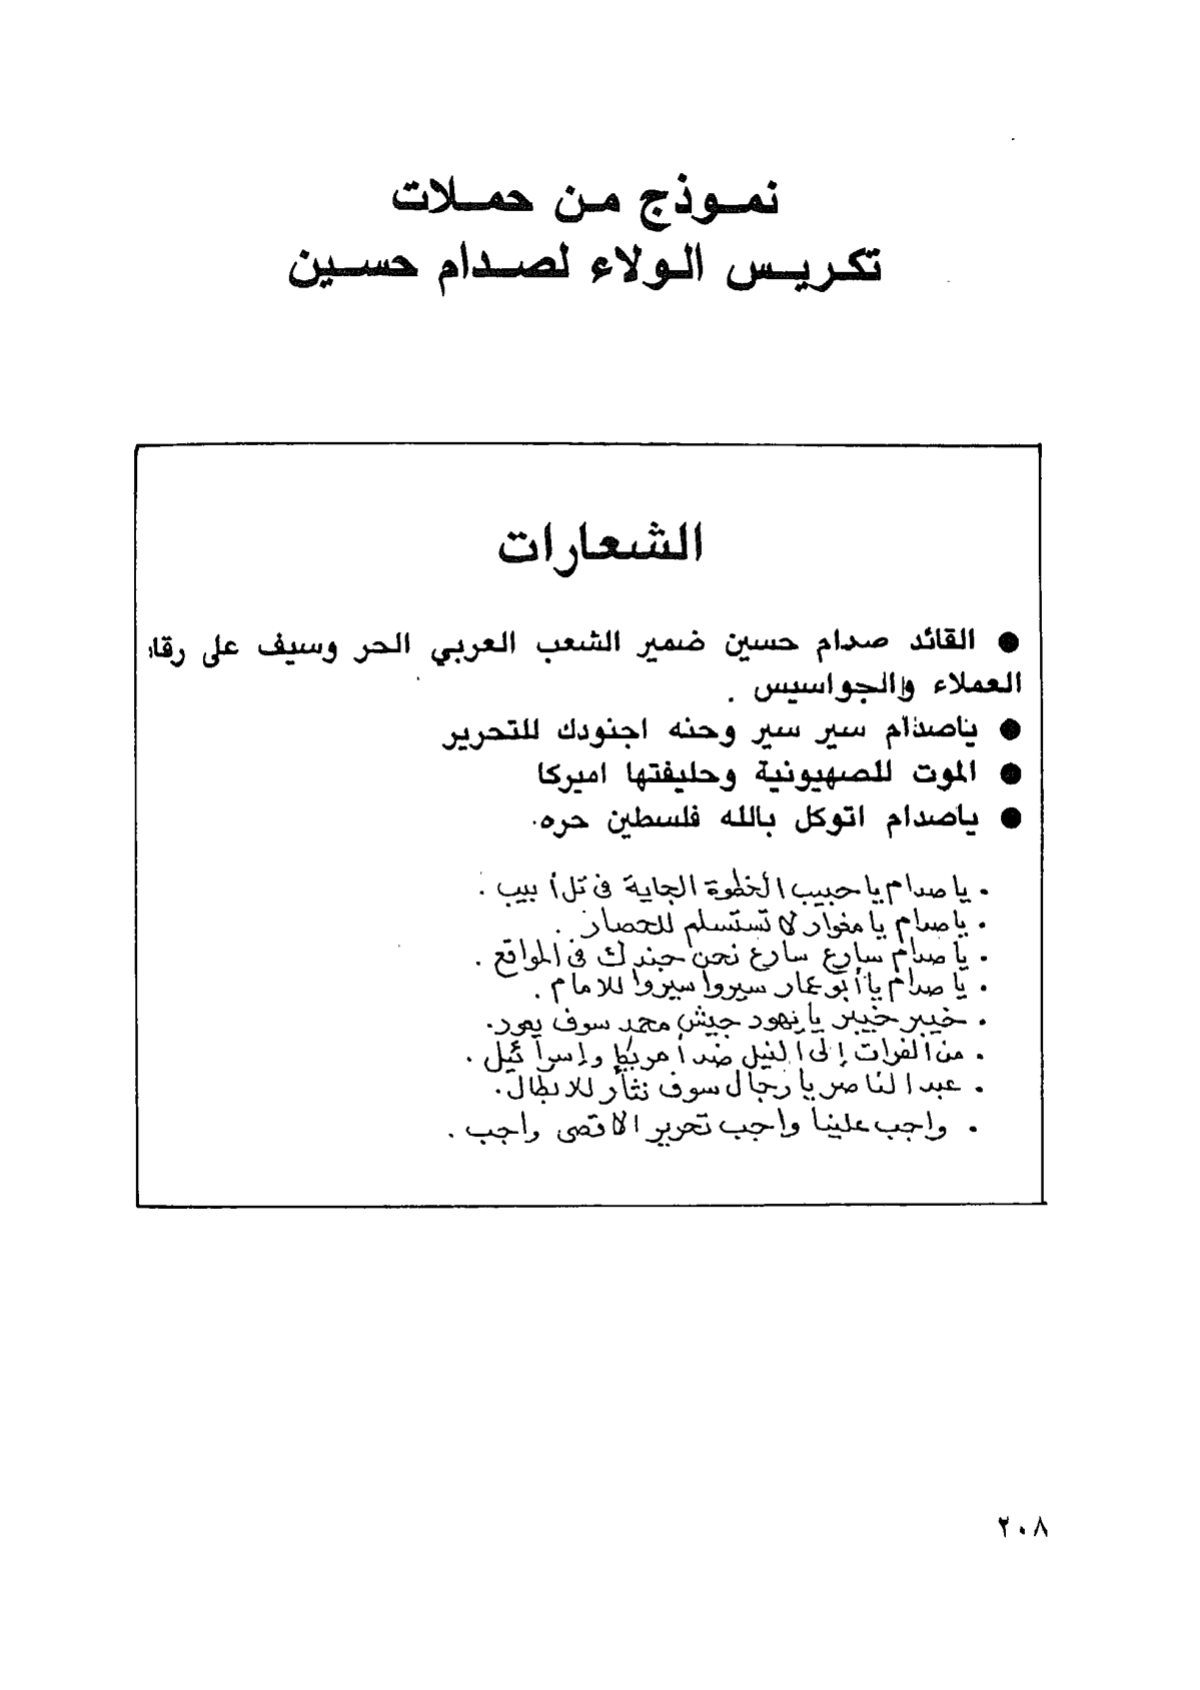 نموذج من حملات
تكريس الولاء لصدام حسين
الشعارات
● القائد صدام حسين ضمير الشعب العربي الحر وسيف على
العملاء والجواسيس .
● ياصدام سير سير وحنه اجنودك للتحرير
● الموت للصهيونية وحليفتها اميركا
● ياصدام اتوكل بالله فلسطين حره.
. يا صدام يا حبيب الخطوة الجاية في تل أبيب .
. يا صدام يا مغوار لا تستسلم للحصار .
. يا صدام سارع سارع نحن جندك في المواقع .
. يا صدام يا أبو عمار سيروا سيروا للامام .
. خيبر خيبر يا يهود جيش محمد سوف يعود.
. من الفرات إلى النيل ضد أمريكا وإسرائيل .
. عبد الناصر يا رجال سوف نثأر للابطال.
. واجب علينا واجب تحرير الاقصى واجب .
٢٠٨